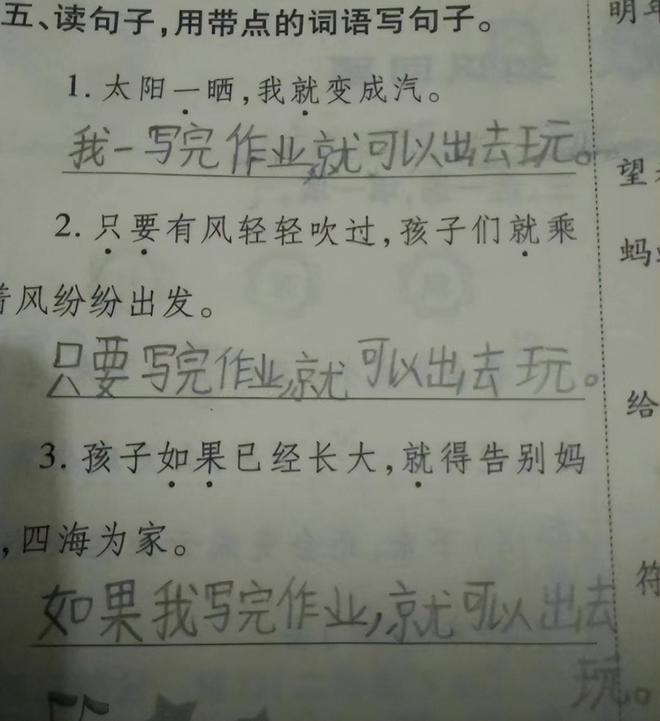 五、读句子,用带点的词语写句子。
明年
1. 太阳一晒,我就变成汽。
我一写完作业,就可以出去玩。
望
2. 只要有风轻轻吹过,孩子们就乘
蚂
着风纷纷出发。
只要写完作业,就可以出去玩。
给
3. 孩子如果已经长大,就得告别妈
,四海为家。
如果我写完作业,就可以出去
玩。
符